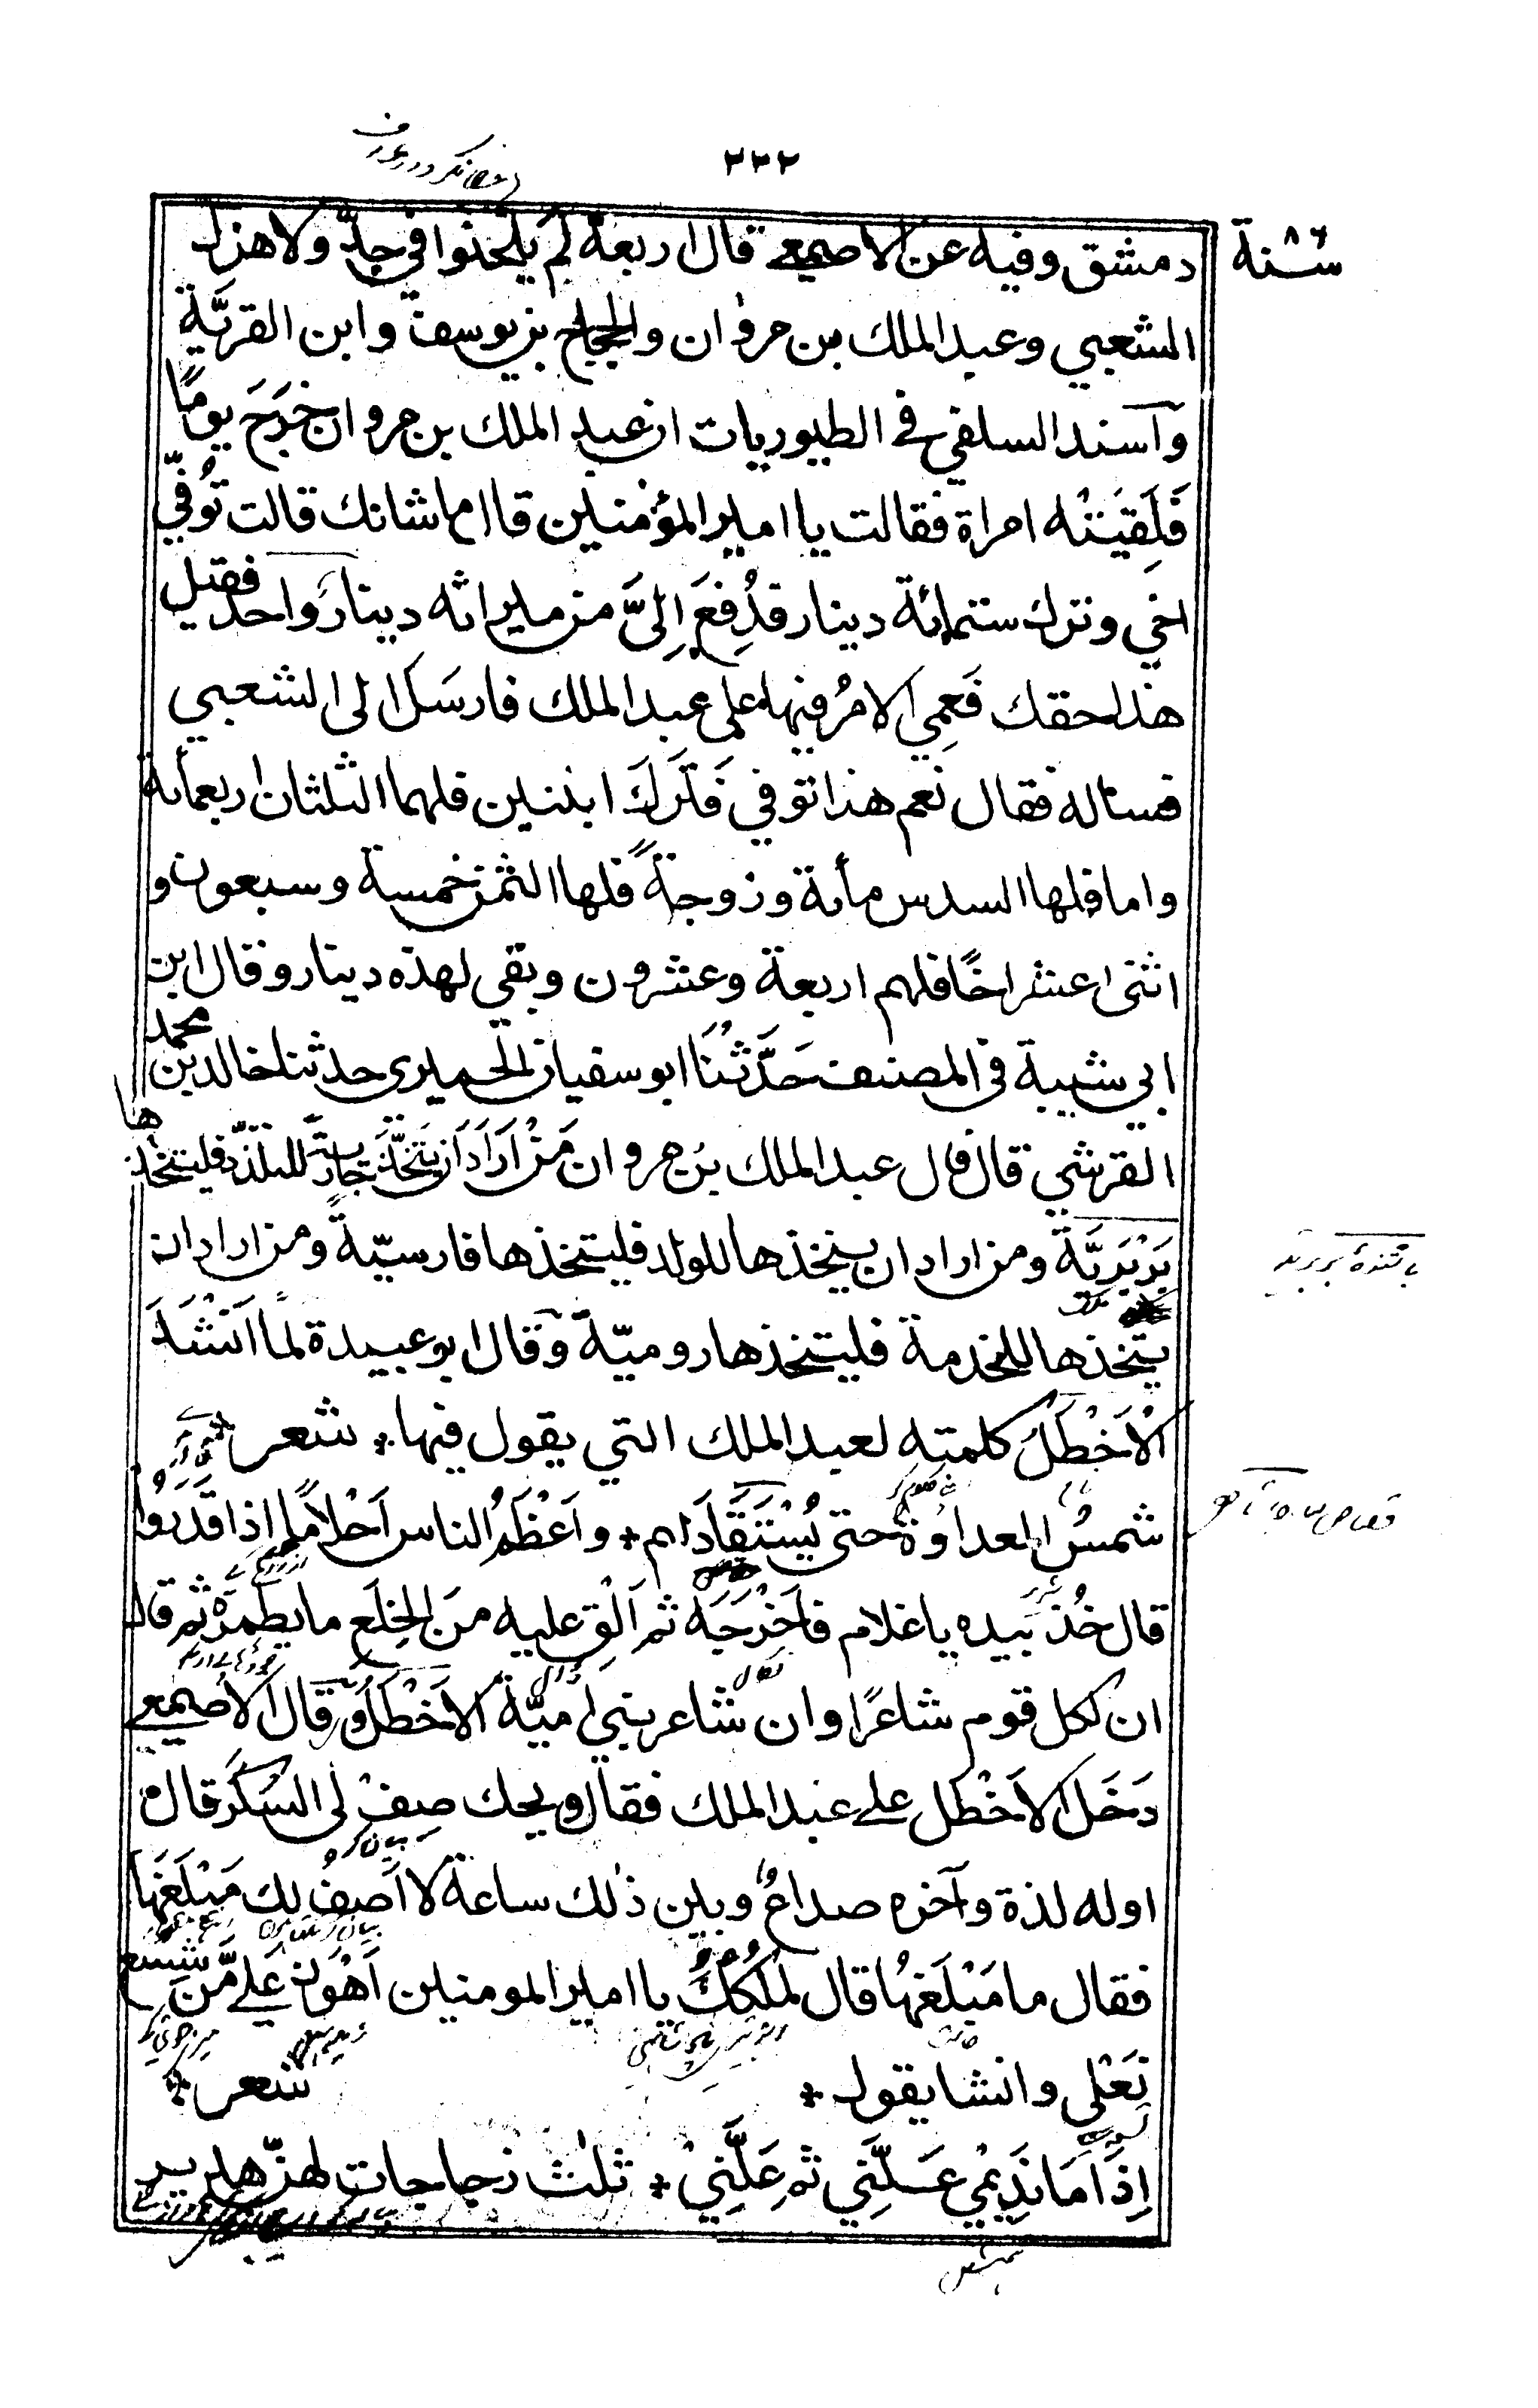 ٣٣٢
سنة ٨٦
دمشق وفيه عن الاصمعي قال اربعة لم يلحنوا في جدّ ولا هزل
الشعبي وعبد الملك بن مروان والحجاج بن يوسف وابن القريَّة
وأسند السلفي في الطيوريات ان عبد الملك بن مروان خَرَجَ يومًا
فَلَقِيَتْه امراة فقالت يا امير المؤمنين قال ما شانك قالت تُوُفّي
اخي وترك ستمائة دينار قد دُفِعَ اِلىَّ من ميراثه دينار واحد فقيل
هذا حقك فَعِمي الامرُ فيها على عبد الملك فارسَل الى الشعبي
فساله فقال نعم هذا توفي فَتَرَكَ ابنتين فلهما الثلثان اربعمأئة
واما فلها السدس مأئة وزوجةً فلها الثمن خمسة وسبعون و
اثنى عشر اخًا فلهم اربعة وعشرون وبقي لهذه دينار وقال ابن
ابي شيبة في المصنف حَدَّثَنَا ابو سفيان الحميرى حدثنا خالد بن محمد
القرشي قال قال عبد الملك بن مروان مَنْ اَرَادَ اَن يتَّخِذَ جاريَةً للتلذّذ فليتخذها
بَرْبَرِيَّة ومن اراد ان يتخذها للولد فليتخذها فارسيّةً ومن اراد ان
يتخذها للخدمة فليتخذها روميّة وقال ابو عبيدة لمَّا اَنْشَدَ
الْاَخْطَلُ كلمته لعبد الملك التي يقول فيها * شعر *
شمسُ العداوَة حتى يُسْتَقَادَ لهم * واَعْظَمُ الناس اَحْلَامًا اذا قَدَرُوا
قال خُذْ بيده يا غلام فاَخْرِجَه ثم اَلْقِ عليه منَ الخِلَع ما يطمره ثم قال
ان لكل قوم شاعرًا وان شاعر بني اميَّة الاَخْطَلُ وقال الاصمعي
دَخَلَ الاَخْطل على عبد الملك فقال ويحك صِفْ لي السُّكرَ قال
اوله لذة وآخره صداعٌ وبين ذلك ساعة لا اَصِفُ لك مَبْلَغَهَا
فقال ما مَبْلَغهُا قال لمُلْكُكَ يا امير المومنين اَهْوَن عَلَىَّ من شسع
نَعْلي وانشا يقول * شعر *
اِذَا مَا نَدِيْمي عَلَّنِي ثم عَلَّنِيْ * ثلث زجاجات لهنّ هدير